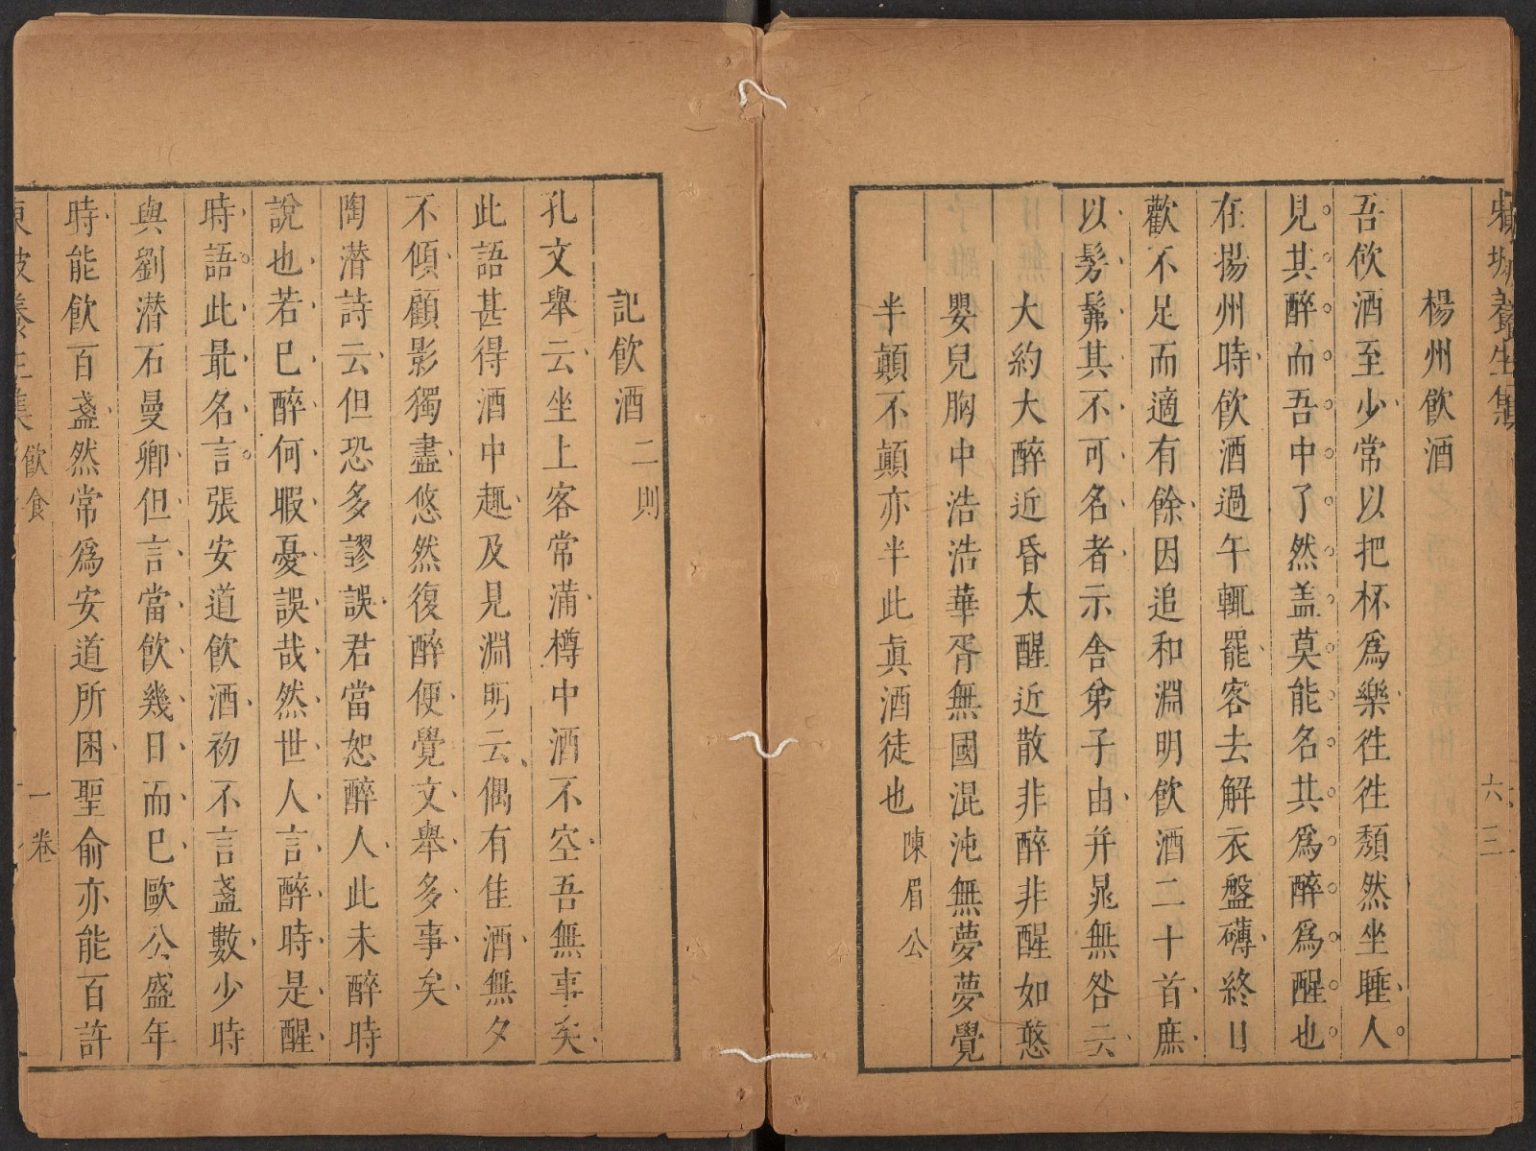 東坡養生集
六三
楊州飲酒
吾飲酒至少常以把杯為樂徃徃頹然坐睡人
見其醉而吾中了然盖莫能名其為醉為醒也
在揚州時飲酒過午輒罷客去解衣盤礴終日
歡不足而適有餘因追和淵明飲酒二十首庶
以髣髴其不可名者示舍弟子由并晁無咎云
大約大醉近昏太醒近散非醉非醒如憨
嬰兒胸中浩浩華胥無國混沌無夢夢覺
半顛不顛亦半此眞酒徒也 陳眉公
記飲酒二則
孔文舉云坐上客常滿樽中酒不空吾無事矣
此語甚得酒中趣及見淵明云偶有佳酒無夕
不傾顧影獨盡悠然復醉便覺文舉多事矣
陶潜詩云但恐多謬誤君當恕醉人此未醉時
說也若已醉何暇憂誤哉然世人言醉時是醒
時語此最名言張安道飲酒初不言盞數少時
與劉潜石曼卿但言當飲幾日而已歐公盛年
時能飲百盞然常為安道所困聖俞亦能百許
東坡養生集 飲食 一卷